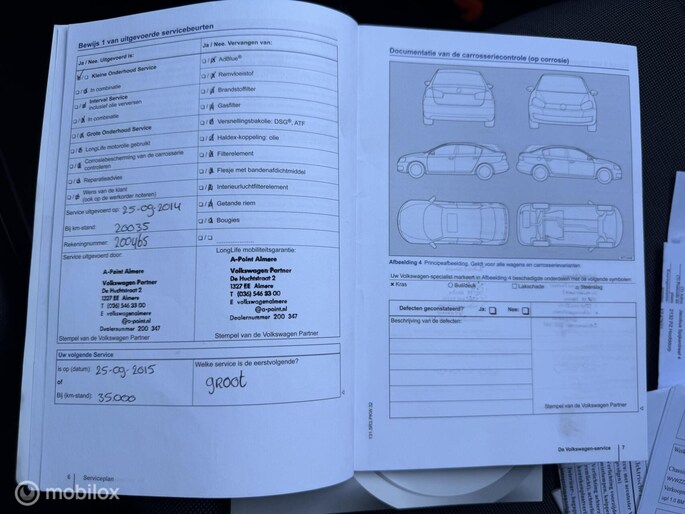 Bewijs 1 van uitgevoerde servicebeurten
Ja / Nee. Uitgevoerd is:
Kleine Onderhoud Service
In combinatie
Interval Service
inclusief olie verversen
In combinatie
Grote Onderhoud Service
LongLife motorolie gebruikt
Corrosiebescherming van de carrosserie
controleren
Reparatieadvies
Wens van de klant
(ook op de werkorder noteren)
Service uitgevoerd op: 25-09-2014
Bij km-stand: 20035
Rekeningnummer: 200465
Service uitgevoerd door:
A-Point Almere
Volkswagen Partner
De Huchtstraat 2
1327 EE Almere
T (036) 546 83 00
E volkswagenalmere
@a-point.nl
Dealernummer 200 347
Stempel van de Volkswagen Partner
Ja / Nee. Vervangen van:
AdBlue®
Remvloeistof
Brandstoffilter
Gasfilter
Versnellingsbakolie: DSG®, ATF
Haldex-koppeling: olie
Filterelement
Flesje met bandenafdichtmiddel
Interieurluchtfilterelement
Getande riem
Bougies
LongLife mobiliteitsgarantie:
A-Point Almere
Volkswagen Partner
De Huchtstraat 2
1327 EE Almere
T (036) 546 83 00
E volkswagenalmere
@a-point.nl
Dealernummer 200 347
Stempel van de Volkswagen Partner
Uw volgende Service
is op (datum): 25-09-2015
of
Bij (km-stand): 35.000
Welke service is de eerstvolgende?
groot
6 Serviceplan
Documentatie van de carrosseriecontrole (op corrosie)
Afbeelding 4 Principeafbeelding. Geldt voor alle wagens en carrosserievarianten.
Uw Volkswagen-specialist markeert in Afbeelding 4 beschadigde onderdelen met de volgende symbolen:
× Kras
Buil/deuk
Lakschade
Steenslag
Defecten geconstateerd? Ja: Nee:
Beschrijving van de defecten:
Stempel van de Volkswagen Partner
De Volkswagen-service 7
mobilox